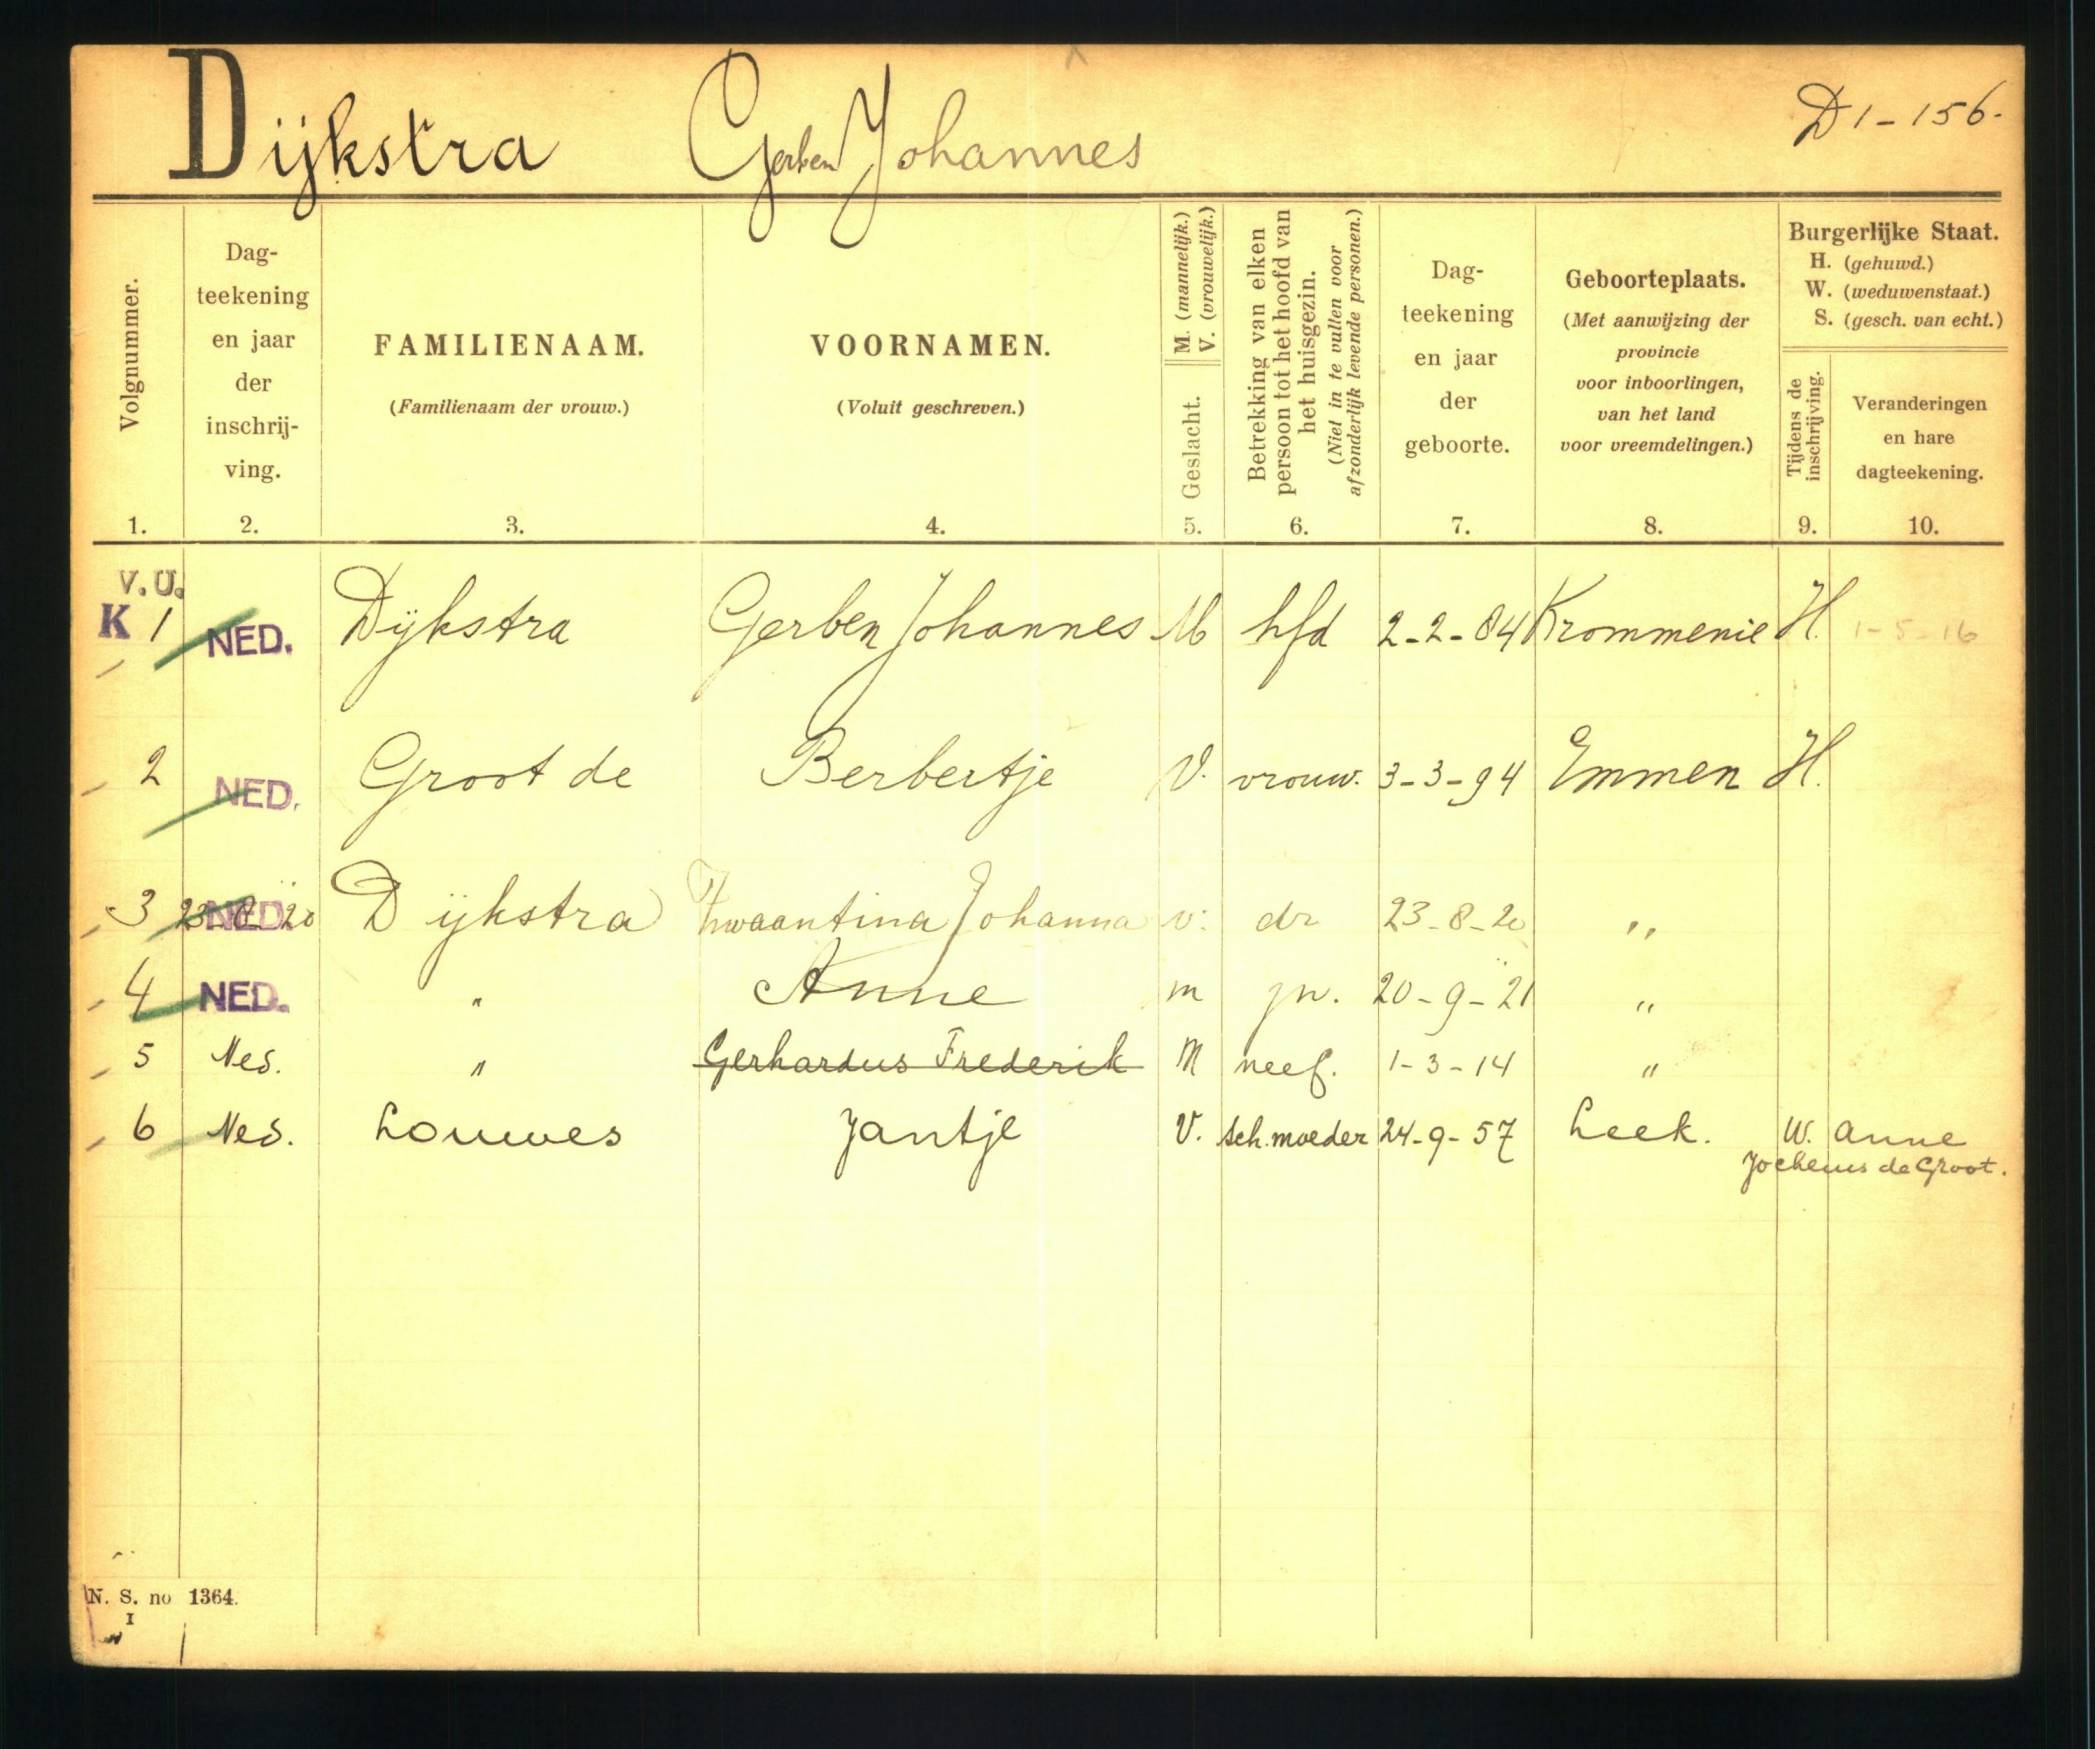 Dijkstra Gerben Johannes D1-156.
Volgnummer.
Dag-
teekening
en jaar
der
inschrij-
ving.
FAMILIENAAM.
(Familienaam der vrouw.)
VOORNAMEN.
(Voluit geschreven.)
M. (mannelijk.)
V. (vrouwelijk.)
Geslacht.
Betrekking van elken
persoon tot het hoofd van
het huisgezin.
(Niet in te vullen voor
afzonderlijk levende personen.)
Dag-
teekening
en jaar
der
geboorte.
Geboorteplaats.
(Met aanwijzing der
provincie
voor inboorlingen,
van het land
voor vreemdelingen.)
Burgerlijke Staat.
H. (gehuwd.)
W. (weduwenstaat.)
S. (gesch. van echt.)
Tijdens de
inschrijving.
Veranderingen
en hare
dagteekening.
1. 2. 3. 4. 5. 6. 7. 8. 9. 10.
V.U.
K 1 NED. Dijkstra Gerben Johannes M hfd 2-2-84 Krommenie H. 1-5-16
2 NED. Groot de Berbertje V. vrouw. 3-3-94 Emmen H.
3 NED. Dijkstra Johanna v. dr 23-8-20 ,,
4 NED. " Anne m zn. 20-9-21 "
5 Ned. " Gerhardus Frederik M neef. 1-3-14 "
6 Ned. Louwes Jantje V. sch.moeder 24-9-57 Leek. W. Anne
Jochems de Groot.
N. S. no 1364.
I